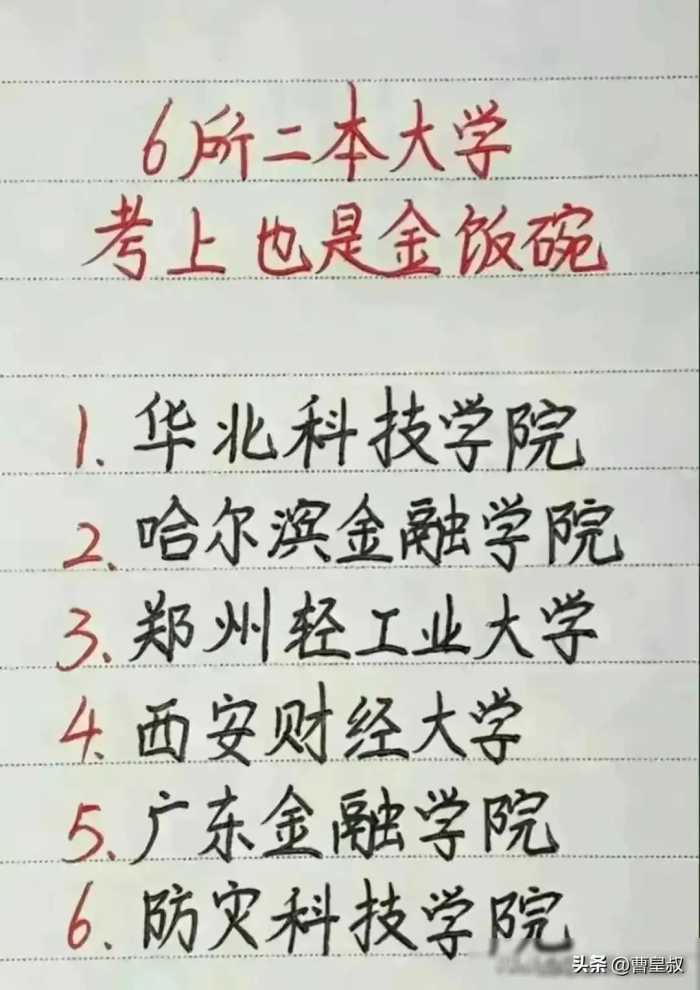 6所二本大学
考上也是金饭碗
1. 华北科技学院
2、哈尔滨金融学院
3、郑州轻工业大学
4、西安财经大学
5、广东金融学院
6、防灾科技学院
头条 @曹皇叔